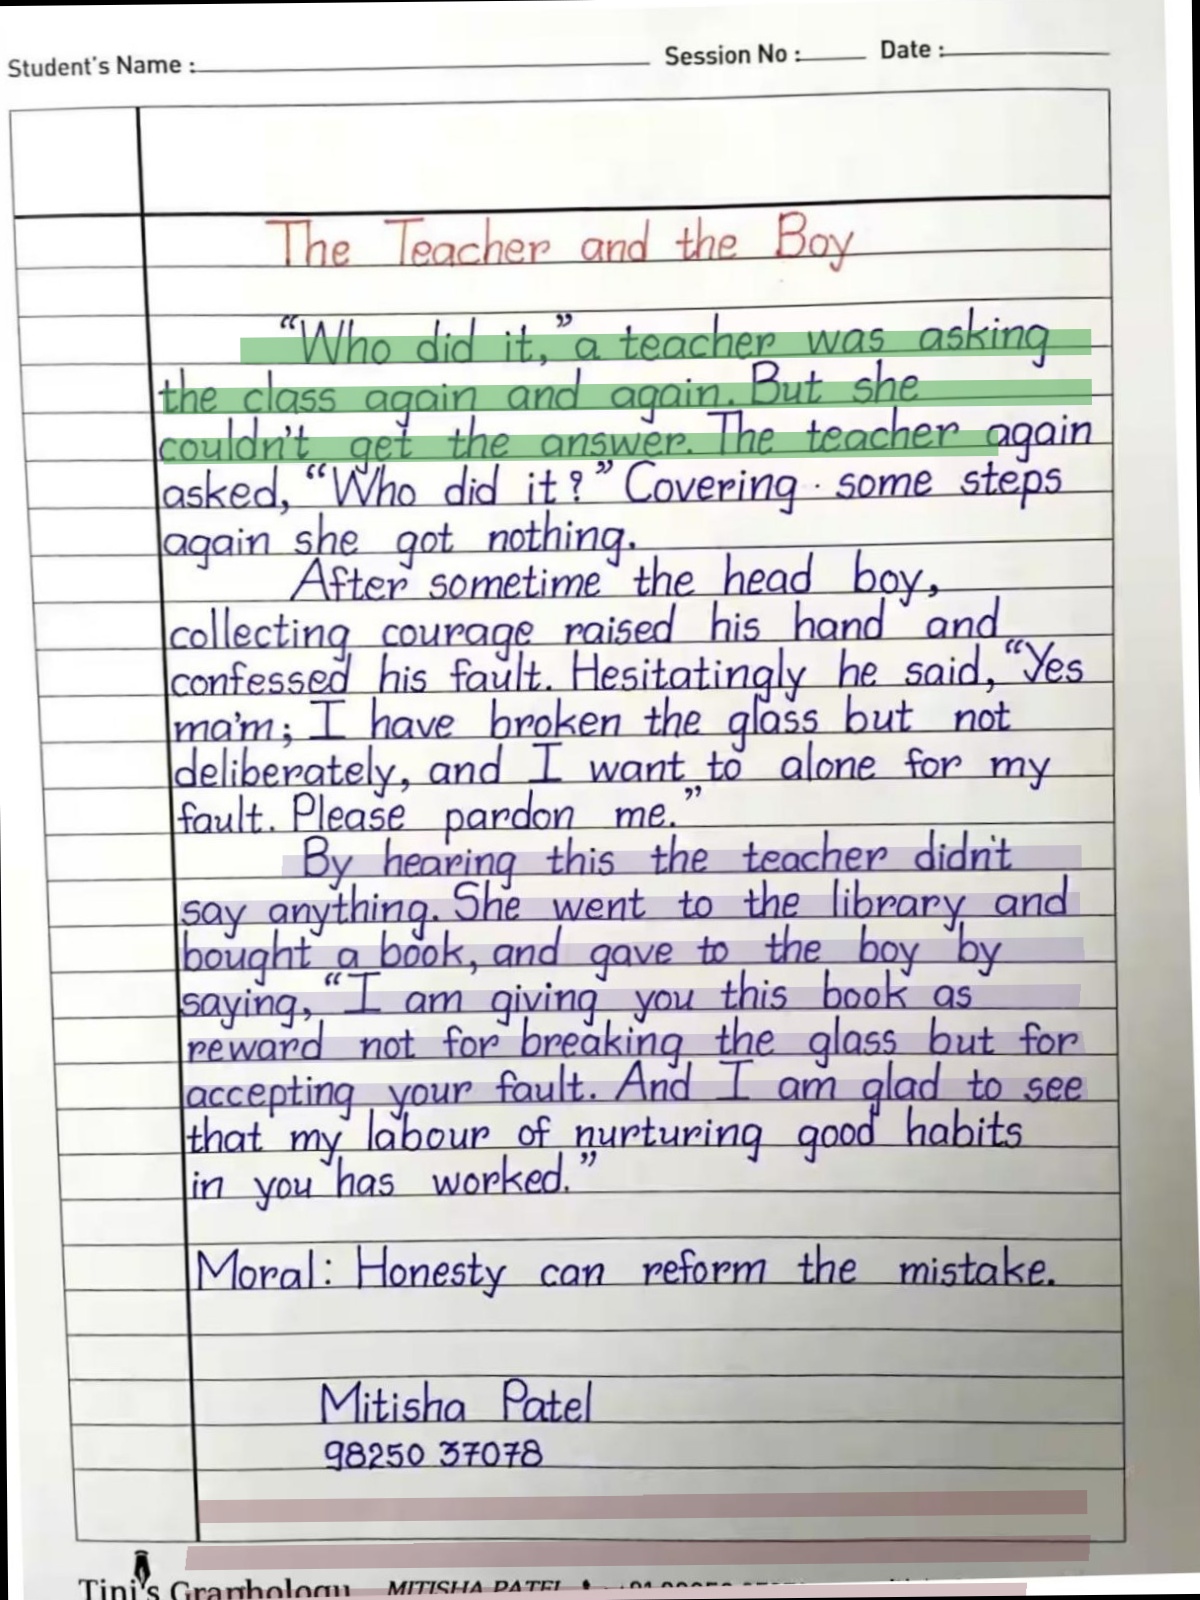 Student's Name :
Session No :
Date :
The Teacher and the Boy
“Who did it,” a teacher was asking
the class again and again. But she
couldn't get the answer. The teacher again
asked, “Who did it?” Covering · some steps
again she got nothing.
After sometime the head boy,
collecting courage raised his hand and
confessed his fault. Hesitatingly he said, “Yes
ma'm; I have broken the glass but not
deliberately, and I want to alone for my
fault. Please pardon me.”
By hearing this the teacher didn't
say anything. She went to the library and
bought a book, and gave to the boy by
saying, “I am giving you this book as
reward not for breaking the glass but for
accepting your fault. And I am glad to see
that my labour of nurturing good habits
in you has worked.”
Moral: Honesty can reform the mistake.
Mitisha Patel
98250 37078
Tini's Graphology MITISHA PATEL